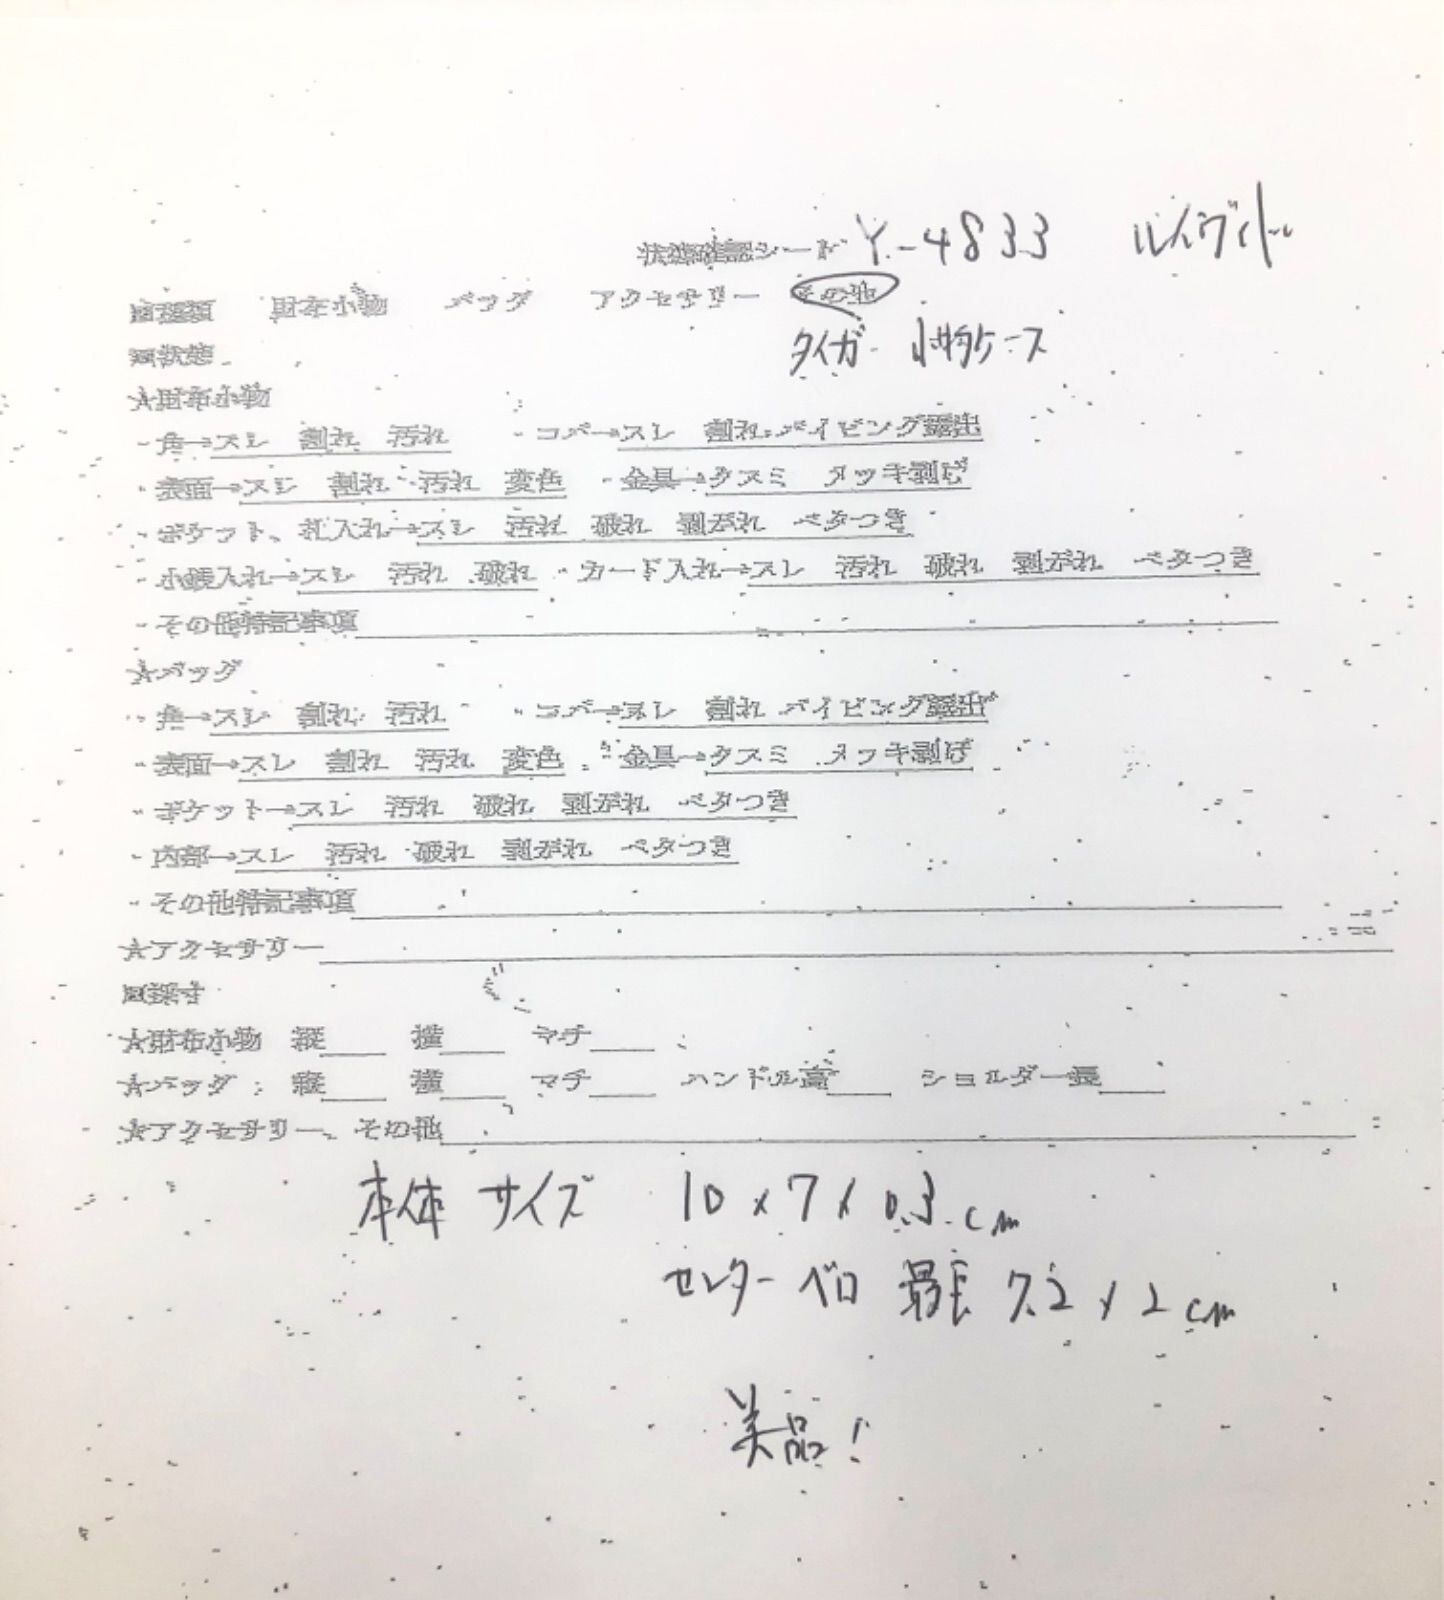 状態確認シート Y-4833 ルイヴィトン
■種類 財布小物 バッグ アクセサリー その他
タイガ 小物ケース
■状態
★財布小物
・角→スレ 割れ 汚れ ・コバ→スレ 割れ パイピング露出
・表面→スレ 割れ 汚れ 変色 ・金具→クスミ メッキ剥げ
・ポケット、札入れ→スレ 汚れ 破れ 剥がれ ベタつき
・小銭入れ→スレ 汚れ 破れ ・カード入れ→スレ 汚れ 破れ 剥がれ ベタつき
・その他特記事項
★バッグ
・角→スレ 割れ 汚れ ・コバ→スレ 割れ パイピング露出
・表面→スレ 割れ 汚れ 変色 ・金具→クスミ メッキ剥げ
・ポケット→スレ 汚れ 破れ 剥がれ ベタつき
・内部→スレ 汚れ 破れ 剥がれ ベタつき
・その他特記事項
★アクセサリー
■採寸
★財布小物 縦 横 マチ
★バッグ 縦 横 マチ ハンドル高 ショルダー長
★アクセサリー、その他
本体 サイズ 10×7×0.3cm
センターベロ 最長 7.2×2cm
美品!